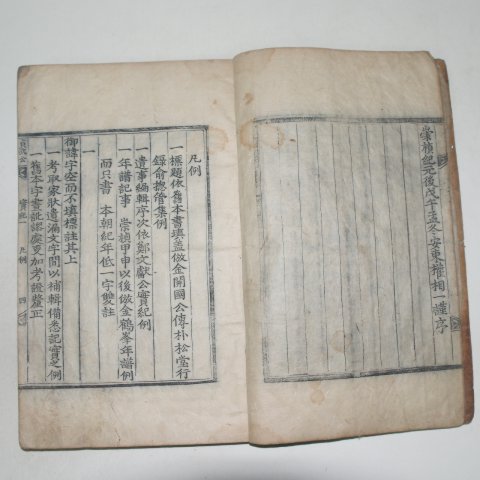 崇禎紀元後戊午孟冬安東權相一謹序
凡例
一 標題依舊本書填盖倣金開國公傳朴松堂行
錄兪㧾管集例
一 遺事編輯序次依鄭文獻公實紀例
一 年譜記事 崇禎甲申以後倣金鶴峯年譜例
而只書 本朝紀年低一字雙註
一
御諱字空而不填標註其上
一 考取家狀遺漏文字間以補輯備悉記實之例
一 舊本字畫訛誤處更加考證釐正
實紀 凡例 四